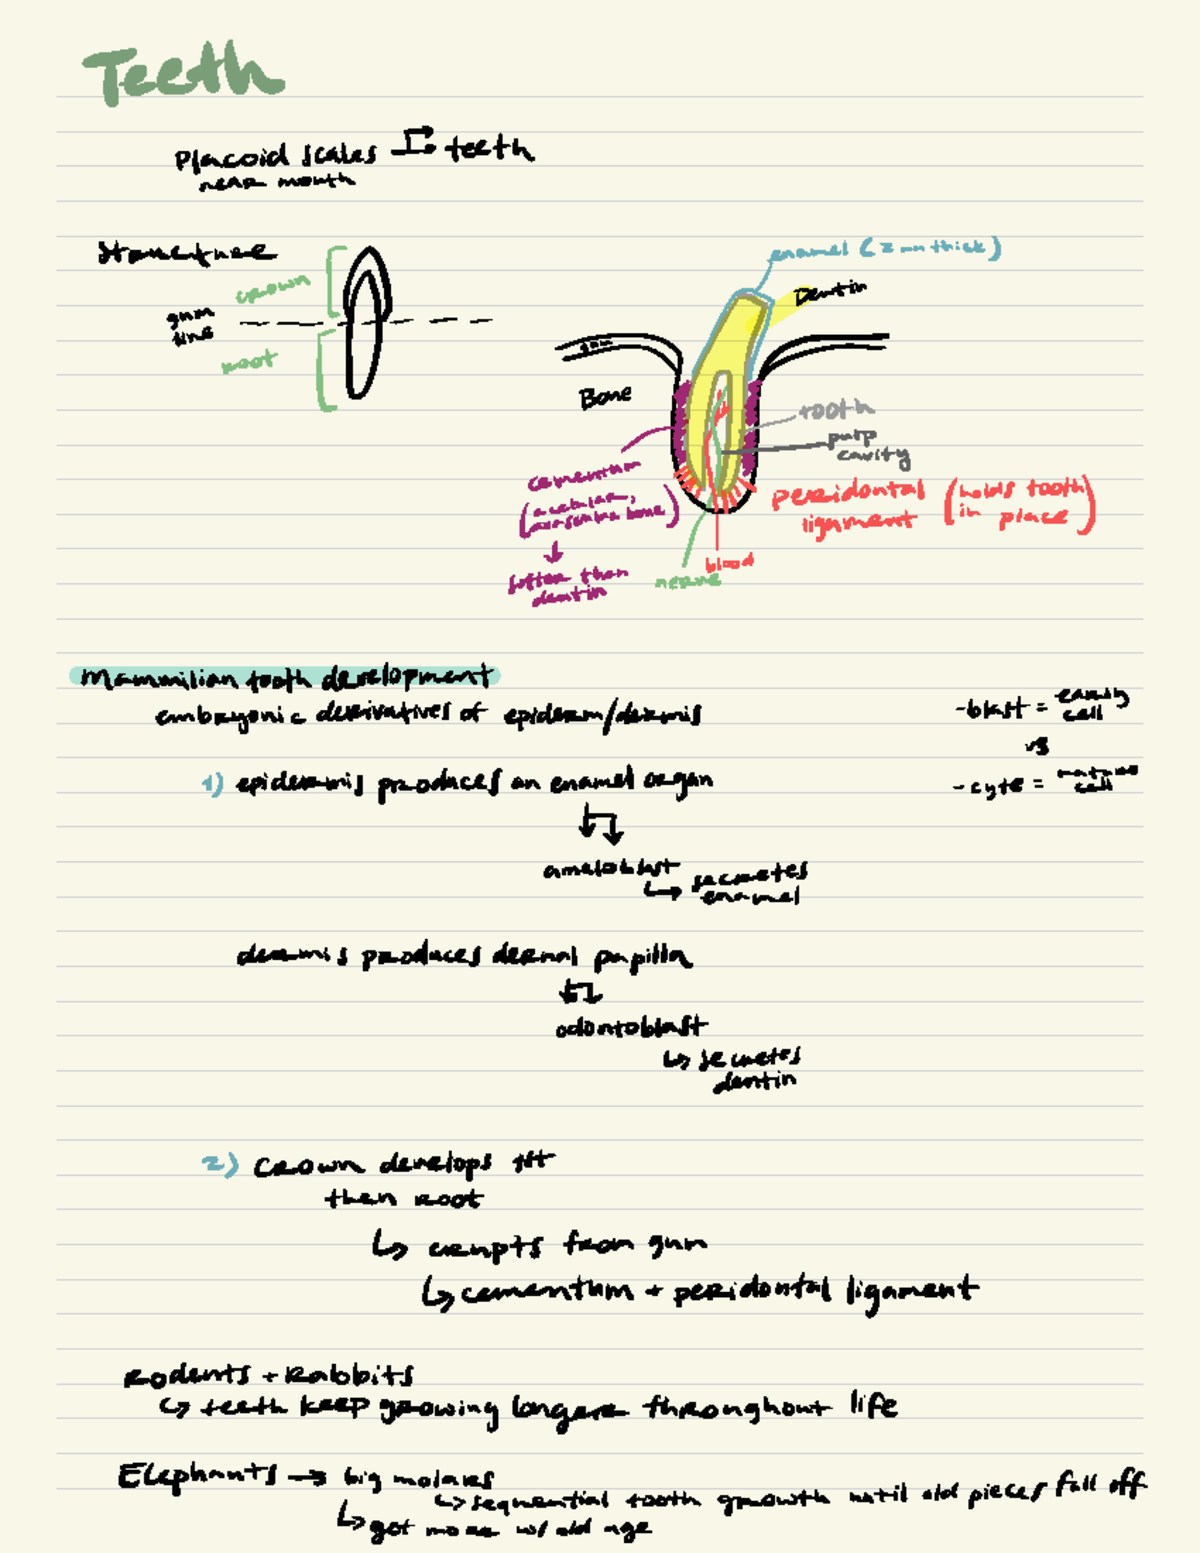 Teeth
Placoid scales → teeth
near mouth
Structure
crown
gum
line
root
enamel (2 mm thick)
Dentin
gum
Bone
tooth
pulp
cavity
cementum
(acellular,
avascular bone)
↓
softer than
dentin
peridontal (holds tooth
ligament in place)
blood
nerve
Mammilian tooth development
embryonic derivatives of epiderm/dermis
-blast = early
cell
vs
-cyte = mature
cell
1) epidermis produces an enamel organ
ameloblast
↳ secretes
enamel
dermis produces dermal papilla
odontoblast
↳ secretes
dentin
2) crown develops 1st
then root
↳ erupts from gum
↳ cementum + peridontal ligament
Rodents + Rabbits
↳ teeth keep growing longer throughout life
Elephants → big molars
↳ sequential tooth growth until old pieces fall off
↳ got more w/ old age